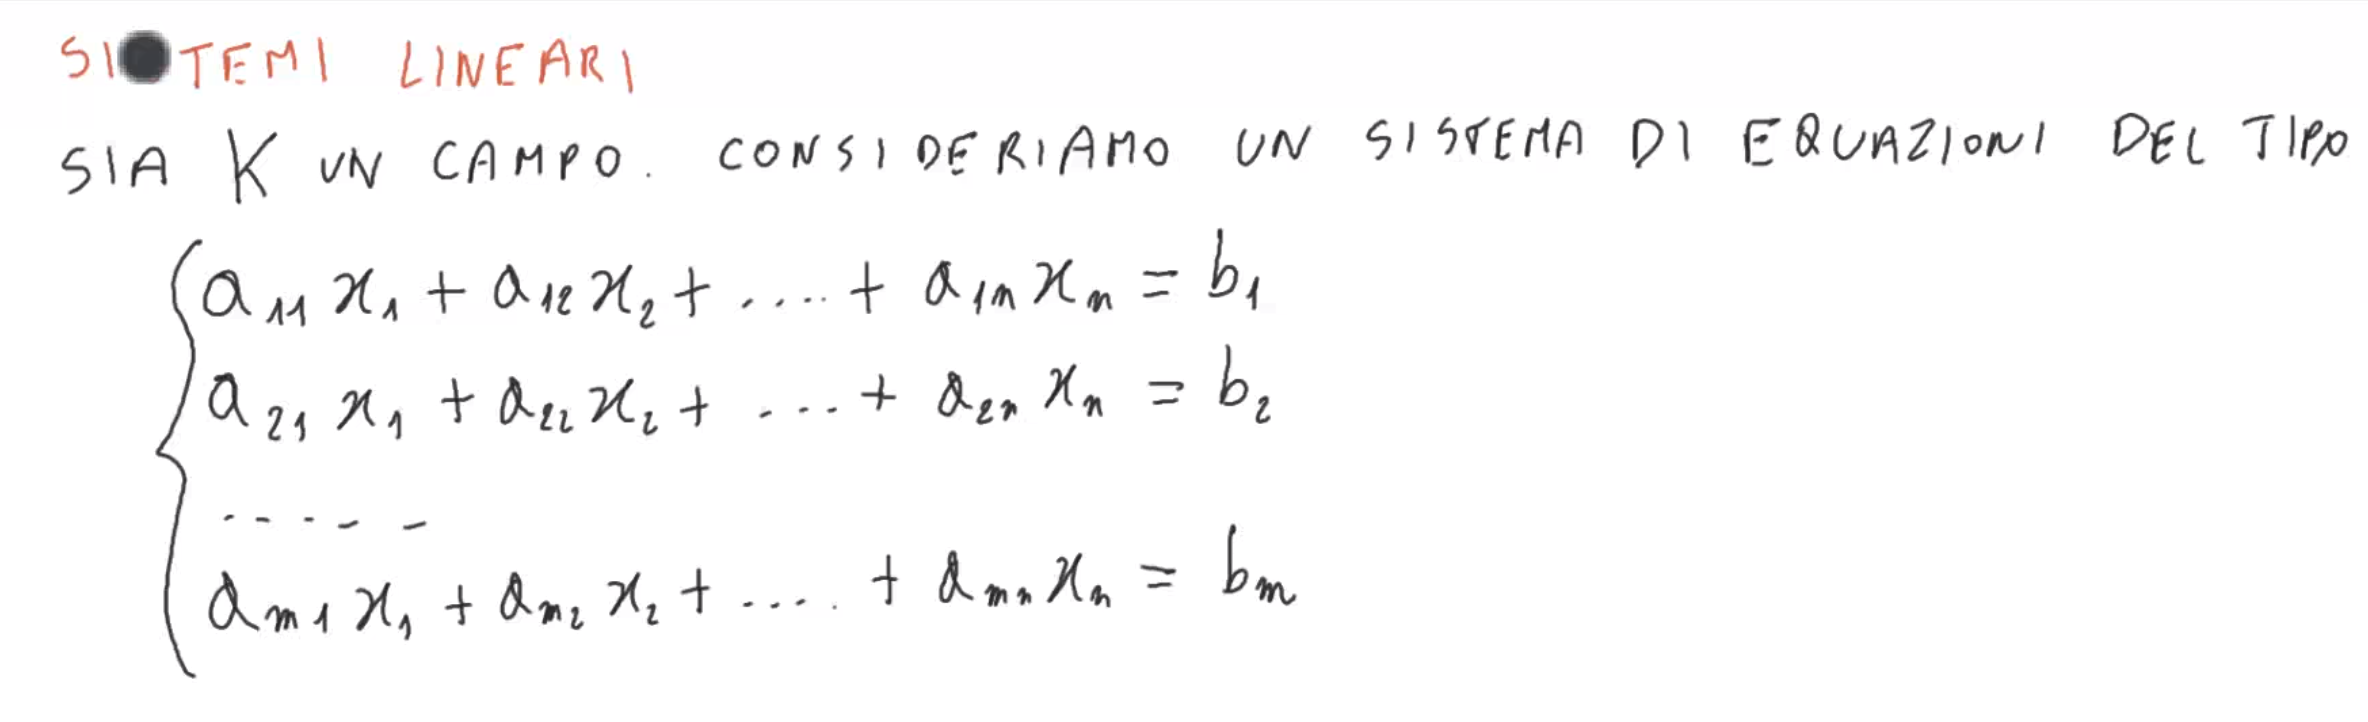 SISTEMI LINEARI
SIA K UN CAMPO. CONSIDERIAMO UN SISTEMA DI EQUAZIONI DEL TIPO
a₁₁ x₁ + a₁₂ x₂ + .... + a₁ₙ xₙ = b₁
a₂₁ x₁ + a₂₂ x₂ + .... + a₂ₙ xₙ = b₂
.....
aₘ₁ x₁ + aₘ₂ x₂ + .... + aₘₙ xₙ = bₘ